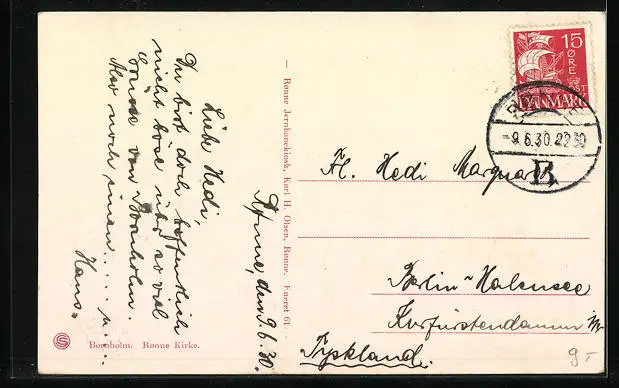 Rønne, den 9.6.30.
Liebe Hedi,
Du bist doch hoffentlich
nicht böse und so viel
Grüsse von Bornholm.
Also noch einen..... u.....
Hans.
Bornholm. Rønne Kirke.
— Rønne Jernbanekiosk, Karl H. Olsen, Rønne. Eneret 61. —
15
ØRE
DANMARK
-9.6.30.22 30
B
Fl. Hedi Marquard
Berlin-Halensee
Kurfürstendamm
Tyskland.
9-